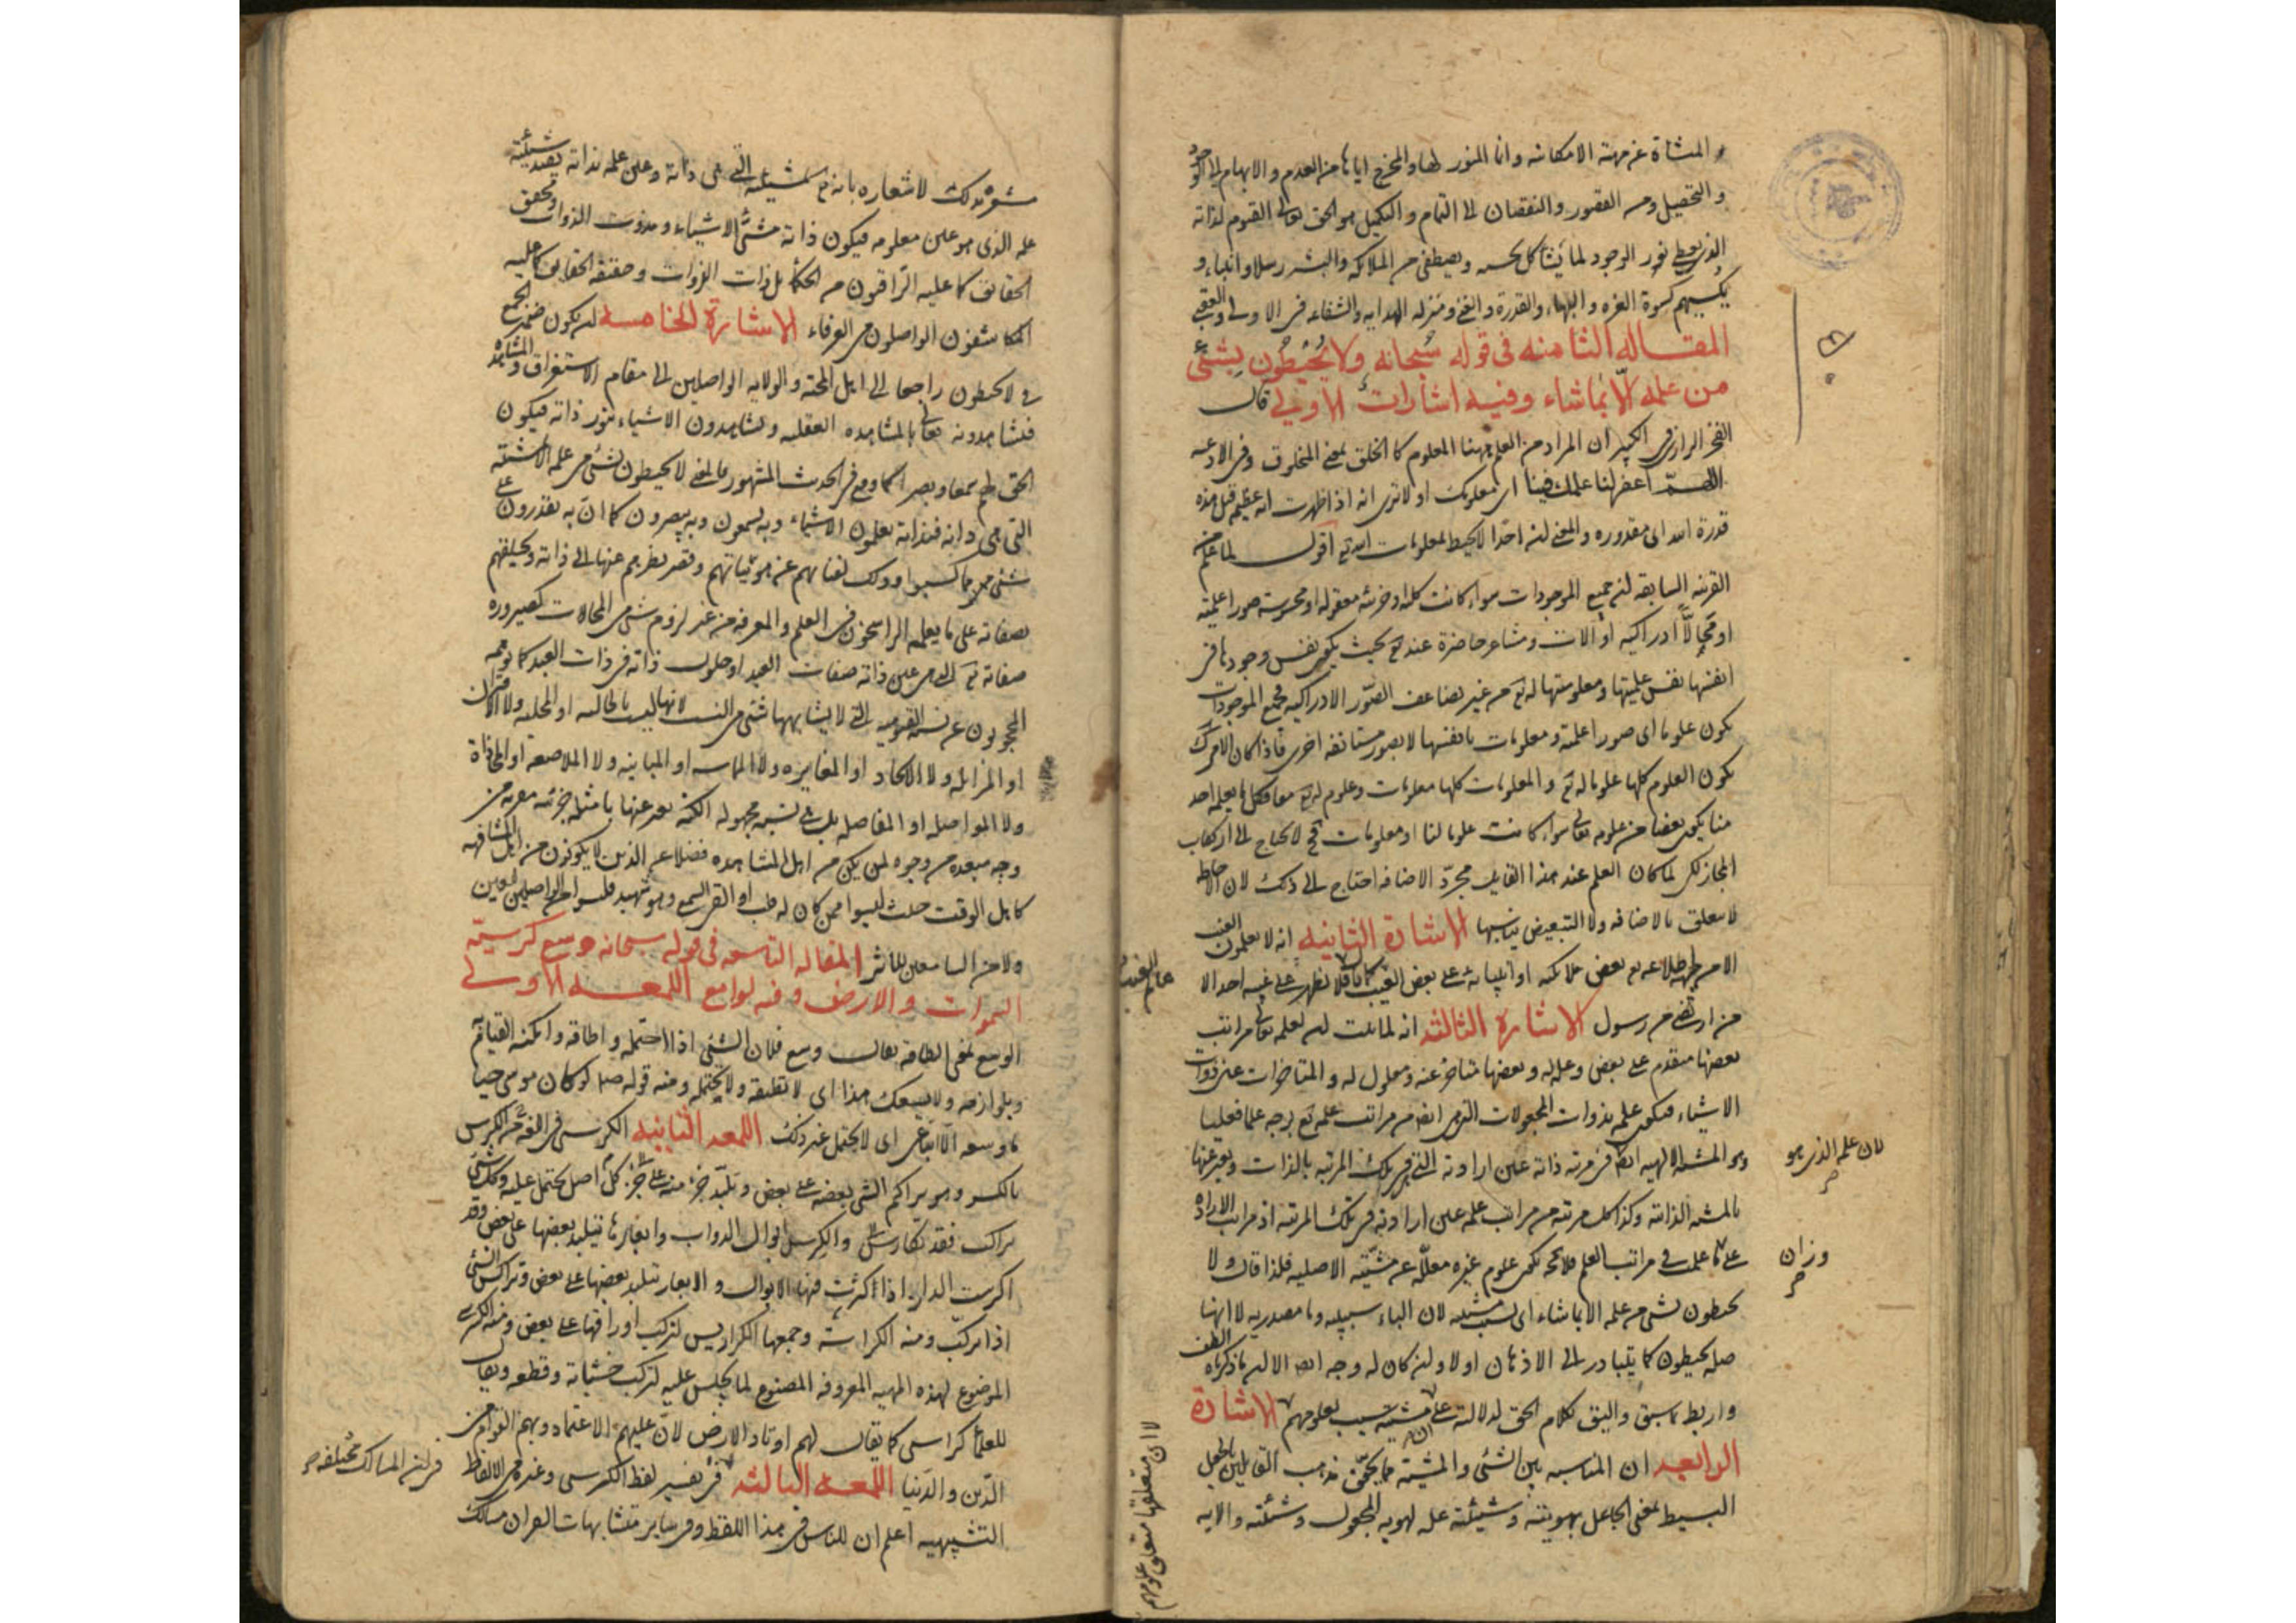 المنشاة عن مهية الامكانية وانما المنور لها والمخرج اياها من العدم والابهام الى الوجود
والتحصيل ومن القصور والنقصان الى التمام والتكميل هو الحق تعالى القيوم لذاته
الذى يعطى نور الوجود لما يشاء كل بحسبه ويصطفى من الملائكه والبشر رسلا وانبياء و
يكسيهم كسوة العزه والبهاء والقدرة والغنى ومنزله الهدايه والشفاعه فى الاولى والعقبى
المقاله الثامنه فى قوله سبحانه ولا يُحيطُون بِشَىْءٍ
من علمه الّا بما شاء وفيه اشارات الاولى قال
الفخر الرازى فى الكبير ان المراد من العلم ههنا المعلوم كما الخلق بمعنى المخلوق وفى الادعيه
اللهمّ اغفر لنا علمك فينا اى معلومك او لا ترى انه اذا ظهرت اية عظيمة قيل هذه
قدرة الله اى مقدوره والمعنى ان احدا لا يحيط بمعلومات الله تع اقول لما علم من
القرينه السابقه ان جميع الموجودات سواء كانت كليه او جزئيه معقوله او محسوسة صورا علميّة
او محالّاً ادراكيه او الات ومشاعر حاضرة عنده تع بحيث يكون نفس وجودها فى
انفسها نفس علميتها ومعلوميتها له تع من غير تضاعف الصّور الادراكيه فجميع الموجودات
يكون علوما اى صورا علمية ومعلومات بانفسها لا بصور مستانفه اخرى فاذا كان الامر كك
يكون العلوم كلها علوما له تع والمعلومات كلها معلومات وعلوم له تع معا فكل ما يعلمه احد
منا يكون بعضا من علومه تعالى سواء كانت علوما لنا او معلومات فح لا يحتاج الى ارتكاب
المجاز لكن لما كان العلم عند هذا القايل مجرّد الاضافه احتاج الى ذلك لان الاحاطه
لا يتعلق بالاضافه ولا التبعيض يناسبها الاشارة الثانيه انه لا يعلمون الغيب
الا من جهة اطلاعه تع بعض ملائكته او انبيائه على بعض الغيب كما قال فلا يظهر على غيبه احدا الا
عالم الغيب
من ارتضى من رسول الاشارة الثالثه انه لما ثبت ان لعلمه تعالى مراتب
بعضها متقدم على بعض وعله له وبعضها متاخر عنه ومعلول له والمتاخرات عين ذوات
الاشياء فيكون علمه بذوات المجعولات التى هى ايضا من مراتب علمه تع بوجه علما فعليا
لان علمه الذى هو
وهو المشيه الالهيه ايضا فى مرتبه ذاته عين ارادته التى فى تلك المرتبه بالذات ويعبر عنها
بالمشيه الذاتيه وكذا كل مرتبه من مراتب علمه عين ارادته فى تلك المرتبه اذ مراتب الاراده
وزان
على مراتب العلم فلا محه يكون علوم غيره معلّله عن مشيّته الاصليه فلذا قال ولا
يحيطون بشىء من علمه الا بما شاء اى بسبب مشيته لان الباء سببيه وما مصدريه لا انها
صله يحيطون كما يتبادر الى الاذهان اولا وان كان له وجه ايضا الا ان ما ذكرناه الطف
واربط بما سبق واليق بكلام الحق لدلالته على ان مشيته سبب علومهم الاشارة
لا ان متعلقها متعلق علومهم
الرابعه ان المناسبه بين الشىء والمشيّة مما يحقق مذهب القايلين بالجعل
البسيط بمعنى الجاعل بهويته وشيئيته عله لهويه المجعول وشيئيته والايه
مشعرة بذلك لاشعاره بانه تع بمشيته التى هى ذاته وعين علمه بذاته يفيد شيئيّة
علمه الذى هو عين معلومه فيكون ذاته مشيّئ الاشياء ومذوّت الذوات ومحقق
الحقايق كما عليه الرّاقون من الحكما بل ذات الذوات وحقيقه الحقايق كما عليه
المكاشفون الواصلون من العرفاء الاشارة الخامسه ان يكون ضمير الجمع
فى لا يحيطون راجعا الى اهل المحبة والولايه الواصلين الى مقام الاستغراق والمشاهده
فيشاهدونه تعالى بالمشاهده العقليه ويشاهدون الاشياء بنور ذاته فيكون
الحق لهم سمعا وبصرا كما وقع فى الحديث المشهور فالمعنى لا يحيطون بشىء من علمه الا بمشيّته
التى هى ذاته فبذاته يعلمون الاشياء وبه يسمعون وبه يبصرون كما ان به يقدرون على
شىء مما كسبوا وذلك لفنائهم عن هوياتهم وقصر نظرهم عنها الى ذاته وتخلقهم
بصفاته على ما يعلمه الراسخون فى العلم والمعرفه من غير لزوم شىء من المحالات كصيروره
صفاته تع التى هى عين ذاته صفات العبد او حلول ذاته فى ذات العبد كما توهمه
المحجوبون عن نسبة القيوميه التى لا يشابهها شىء من النسب لانها ليست بالحاليه او المحليه ولا الاقتران
او المزايله ولا الاتحاد او المغايره ولا المماسه او المباينه ولا الملاصقه او المحاذاة
ولا المواصله او المفاصله بل هى نسبة مجهولة الكنه يعبر عنها بامثله جزئيه مقربه من
وجه مبعده من وجوه لمن يكن من اهل المشاهده فضلا عن الذين لا يكونون من اهل المشافهه
كاهل الوقت حيث ليسوا ممن كان له قلب او القى السمع وهو شهيد فليسوا من الواصلين للعين
ولا من السامعين للاثر المقاله التاسعه فى قوله سبحانه وسع كرسيّه
السموات والارض وفيه لوامع اللمعه الاولى
الوسع بمعنى الطاقه يقال وسع فلان الشىء اذا احتمله واطاقه وامكنه القيام به
وبلوازمه ولا يسعك هذا اى لا تطيقه ولا يحتمله ومنه قوله صلى لو كان موسى حيا
ما وسعه الّا اتباعى اى لا يحتمل غير ذلك اللمعه الثانيه الكرسى فى اللغة من الكِرس
بالكسر وهو تراكم الشى بعضه على بعض وتلبّد جزء منه على جزء كل اصل يحتمل عليه وكل شىء
تراكب فقد تكارس والكِرس ابوال الدواب وابعارها يتلبد بعضها على بعض وقد
اكرست الدار اذا كثرت فيها الابوال والابعار تلبد بعضها على بعض وتراكس الشىء
اذا تركّب ومنه الكراسة وجمعها الكراريس لتركب اوراقها على بعض ومنه الكرسى
الموضوع لهذه الهيه المعروفه المصنوع لما يجلس عليه لتركب خشباته وقطعه ويقال
للعلماء كراسى كما يقال لهم اوتاد الارض لان عليهم الاعتماد وبهم القوام من
الدّين والدّنيا اللمعه الثالثه فى تفسير لفظ الكرسى وغيره من الالفاظ
فى ان المسالك مختلفه
التشبيهيه اعلم ان للناس فى هذا اللفظ وفى ساير متشابهات القران مسالك